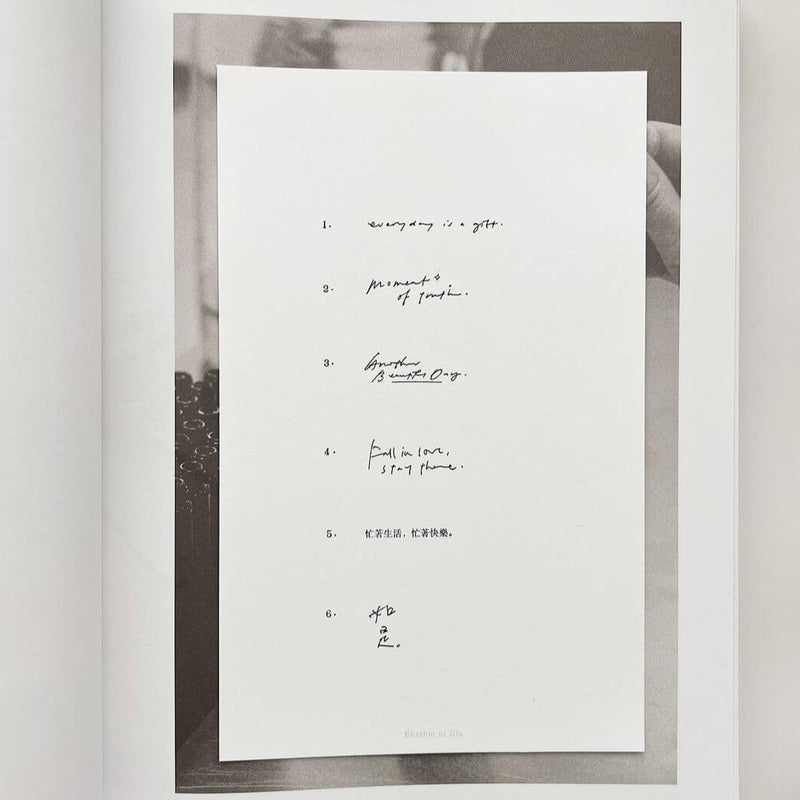 1. everyday is a gift.
2. Moment
of youth.
3. Another
Beautiful Day.
4. Fall in love,
stay there.
5. 忙著生活，忙著快樂。
6. 知
足。
Rhythm of life